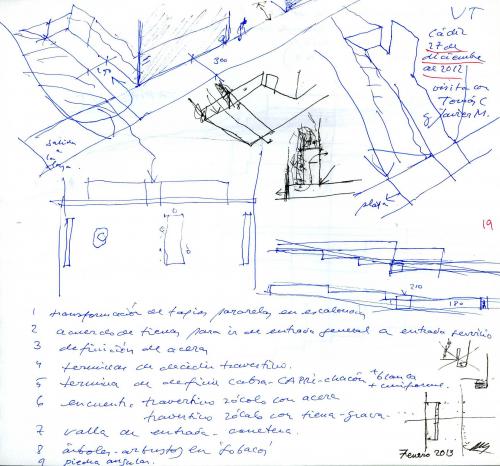 VT
Cádiz
27 de
diciembre
de 2012
visita con
Tomás C
y Javier M.
300
salida
a
la
playa.
playa
19
C
210
180
1 transformación de tapias paralelas en escalones
2 acuerdo de tierras para ir de entrada general a entrada servicio
3 definición de acera
4 terminar de decidir travertino.
5 termina de definir cabra-CAPRI-chacón + blanca
+ uniforme.
6 encuentro travertino zócalo con acera
travertino zócalo con tierra-grava...
7 valla de entrada-
8 árboles-arbustos en
9 piedra angular.
Febrero 2013